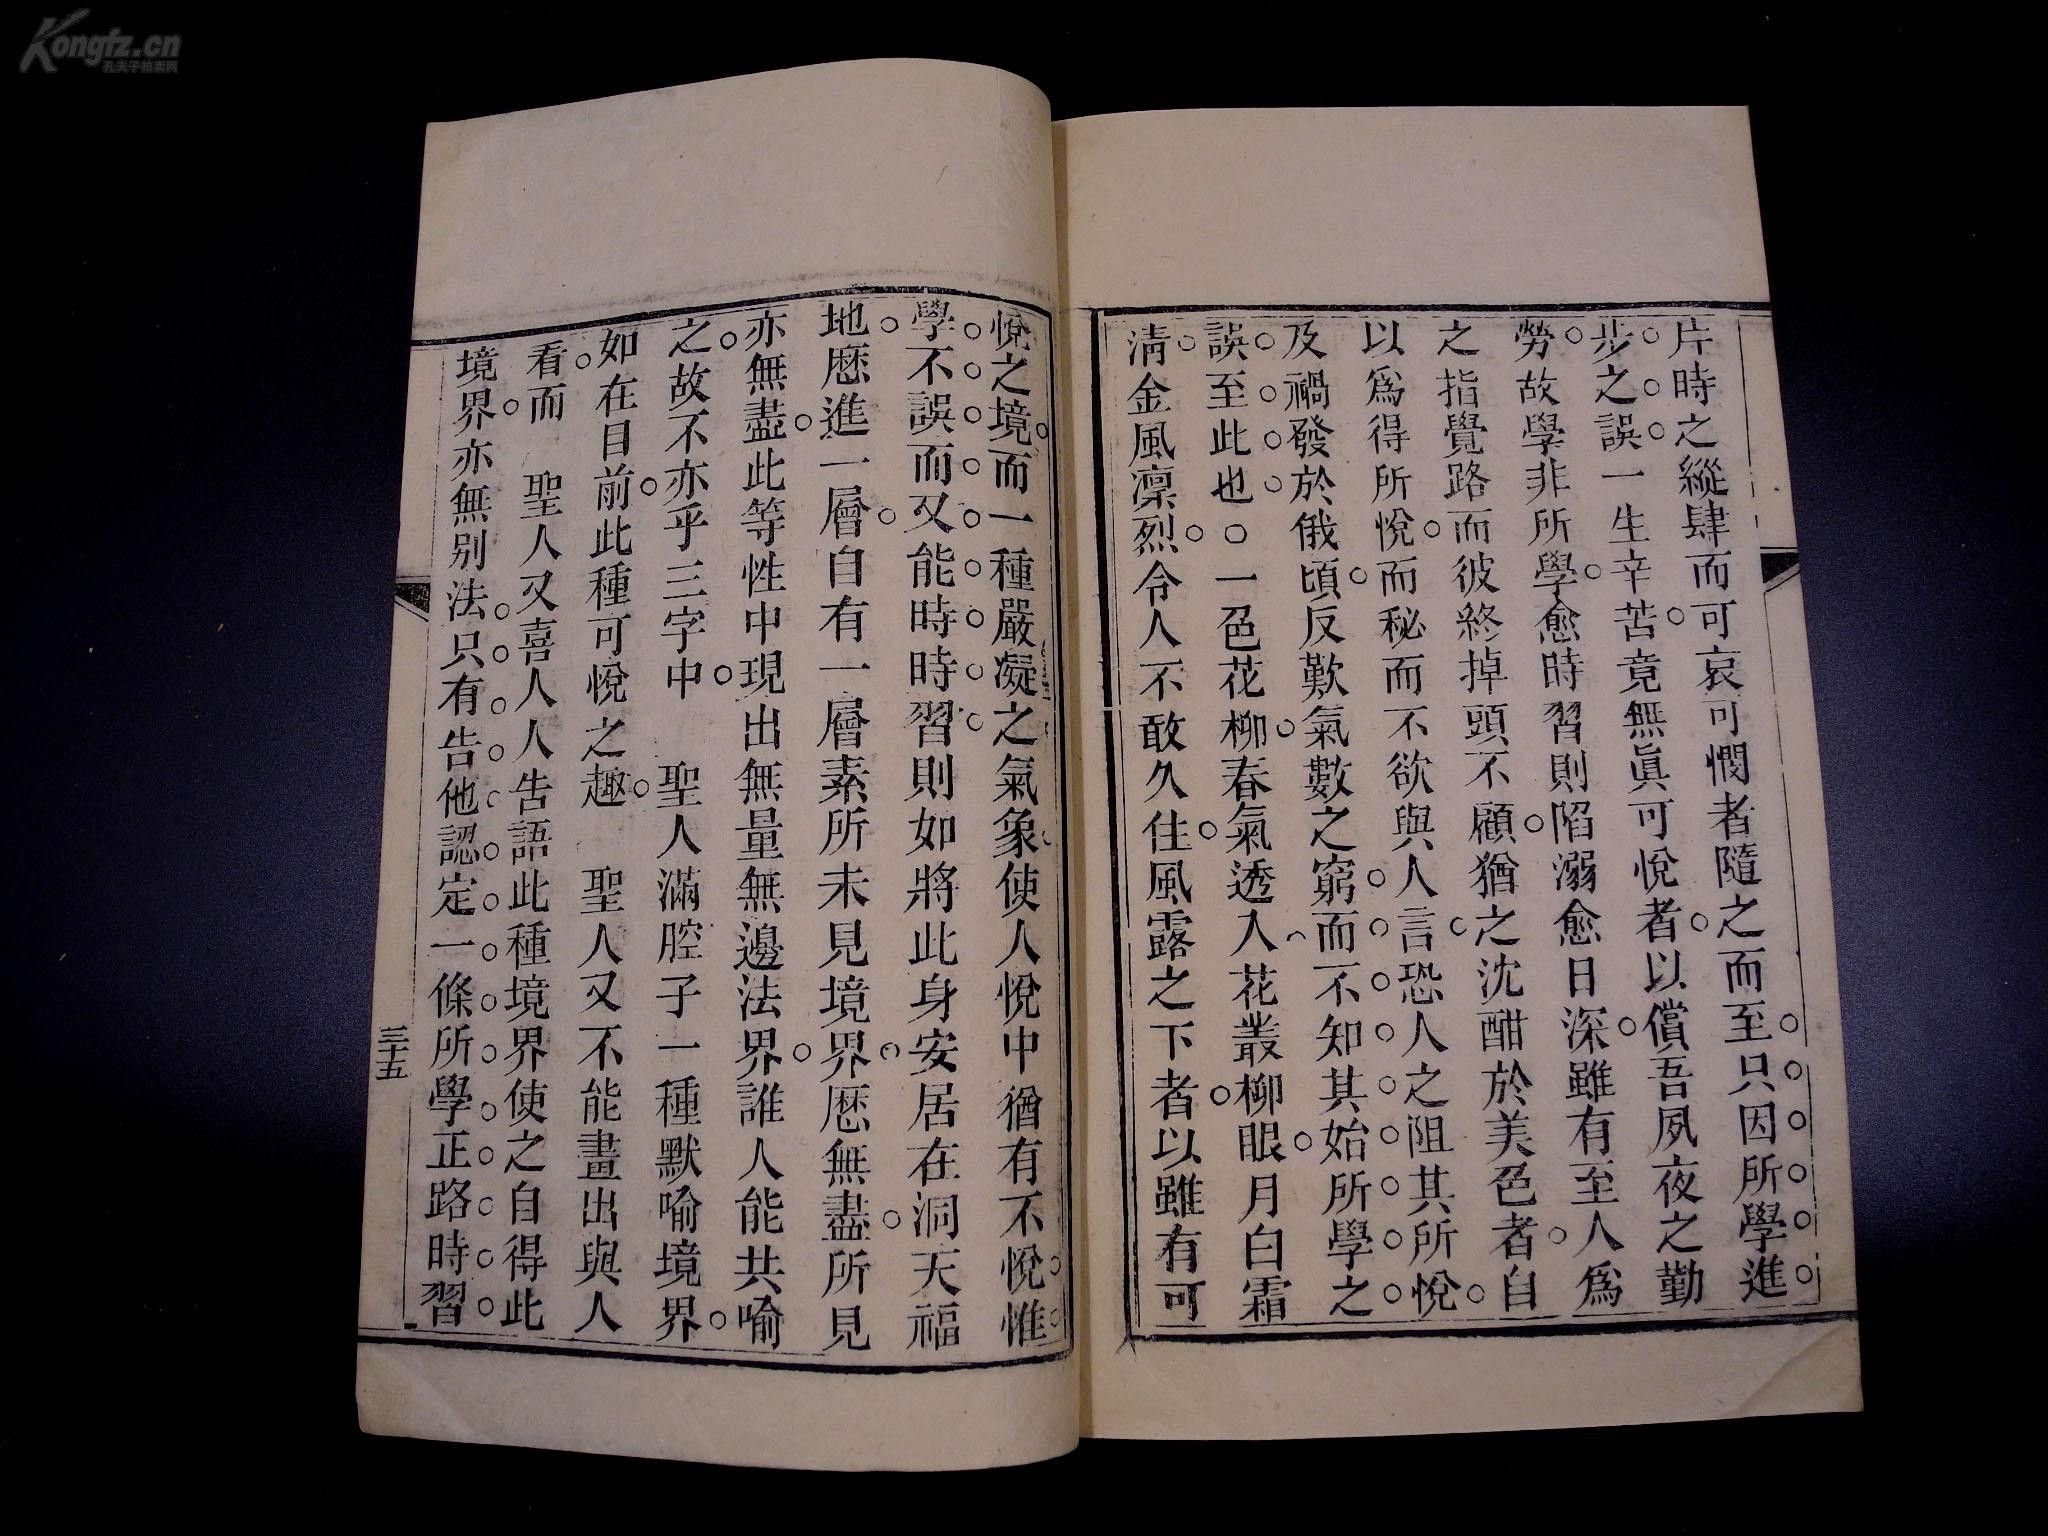 Kongfz.cn
孔夫子拍卖网
片時之縱肆而可哀可憫者隨之而至只因所學進
步之誤一生辛苦竟無眞可悅者以償吾夙夜之勤
勞故學非所學愈時習則陷溺愈日深雖有至人爲
之指覺路而彼終掉頭不顧猶之沈酣於美色者自
以爲得所悅而秘而不欲與人言恐人之阻其所悅
及禍發於俄頃反歎氣數之窮而不知其始所學之
誤至此也○一色花柳春氣透入花叢柳眼月白霜
淸金風凛烈令人不敢久住風露之下者以雖有可
悅之境而一種嚴凝之氣象使人悅中猶有不悅惟
學不誤而又能時時習則如將此身安居在洞天福
地歷進一層自有一層素所未見境界歷無盡所見
亦無盡此等性中現出無量無邊法界誰人能共喻
之故不亦乎三字中 聖人滿腔子一種默喻境界
如在目前此種可悅之趣 聖人又不能畫出與人
看而 聖人又喜人人告語此種境界使之自得此
境界亦無别法只有告他認定一條所學正路時習
三十五